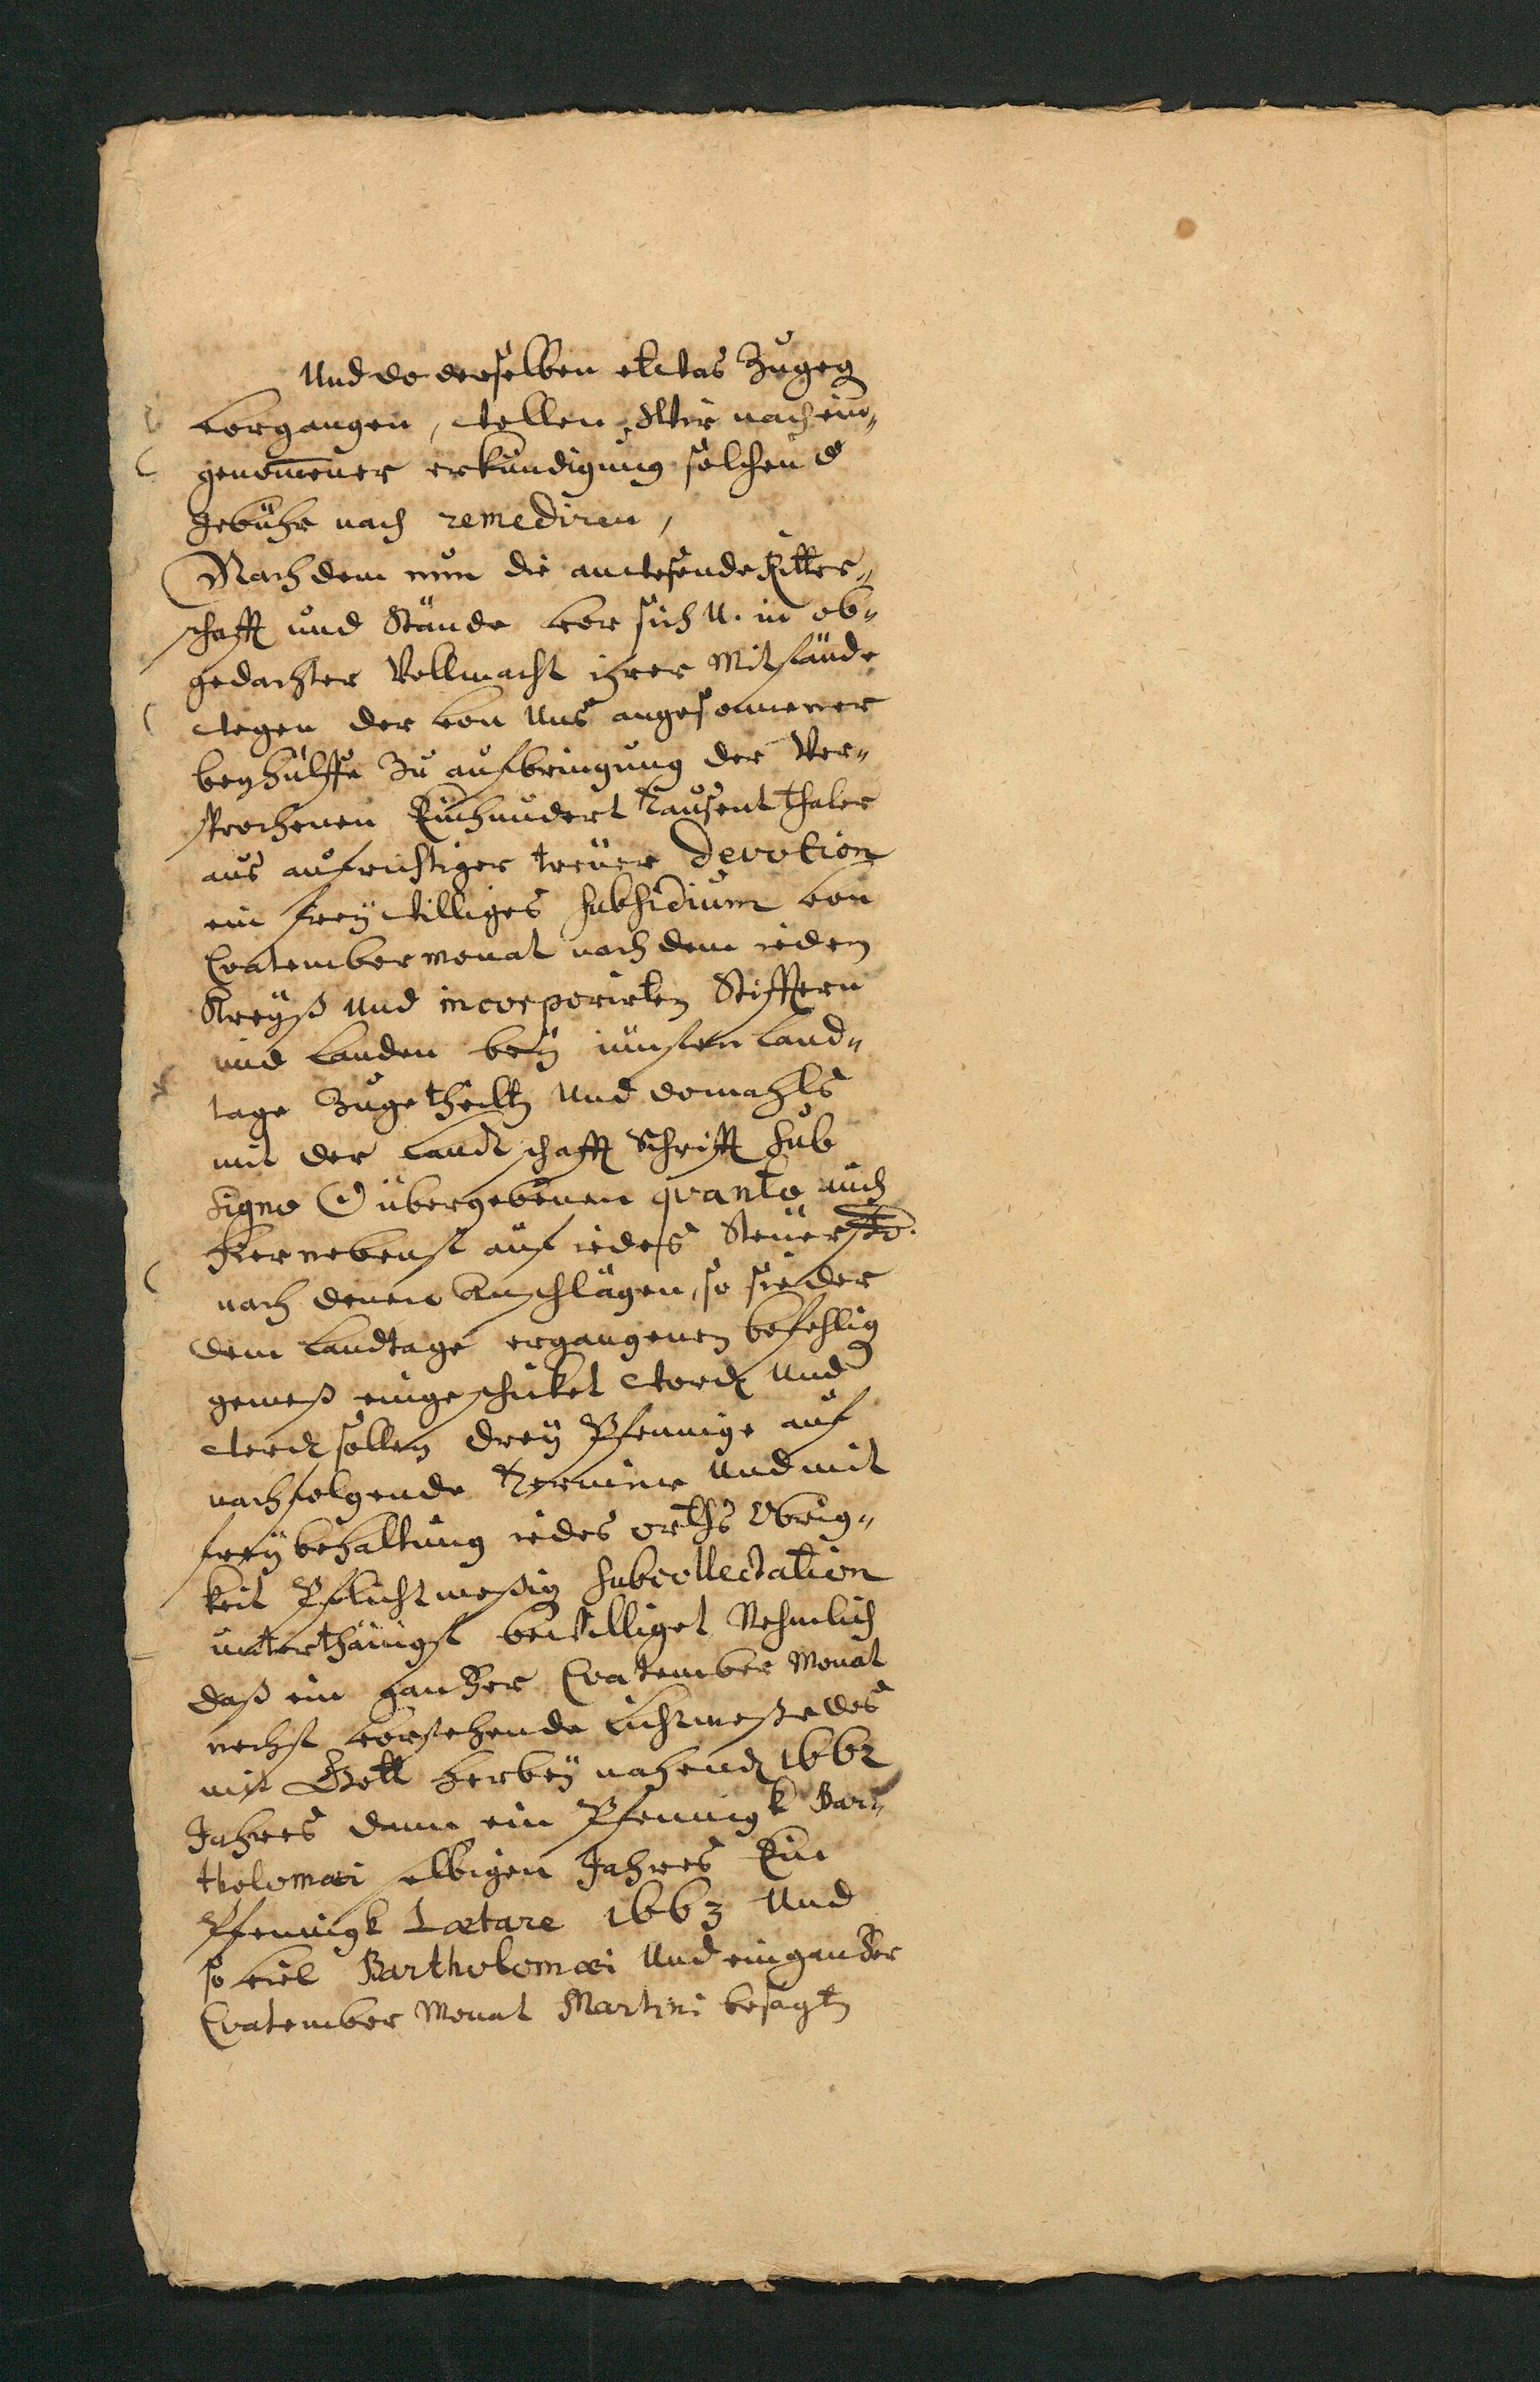 Und do derselben etwas zugeg
vorgangen, wollen Wir nach ein„
genom̅ener erkundigung solchen d
gebühr nach remediren,
Nach dem nun die anwesende Ritter„
schafft und Stände vor sich u. in ob„
gedachter Vollmacht ihrer Mitstände
wegen der von Uns angesonnener
beyhülffe zu aufbringung der Ver„
sprochenen Einhundert tausent thaler
aus aufrichtiger treuer Devotion
ein freywilliges subsidium von
Quatember monat nach dem ieden
Kreyß und incorporirten Stifftern
und Landen bey iüngsten Land„
tage zugetheilten und domahls
mit der Landtschafft Schrifft sub
signo ☉ übergebenen quanto auch
hiernebenst auf iedes Steuerßo.
nach denen Anschlägen, so sie der
dem Landtage ergangenen befehlig
gemeß eingeschicket word und
werd sollen drey Pfennige auf
nachfolgende Termine und mit
freybehaltung iedes orths Obrig„
keit Pflichtmeßig subcollectation
unterthänigst bewilliget Nehmlich
daß ein gantzer Quatember Monat
nechst vorstehende Lichtmeße des
mit Gott herbey nahend 1662
Jahres dann ein Pfennigk Bar„
tholomæi selbigen Jahres Ein
Pfennigk Lætare 1663 und
so viel Bartholomæi und ein gantzer
Quatember Monat Martini besagten